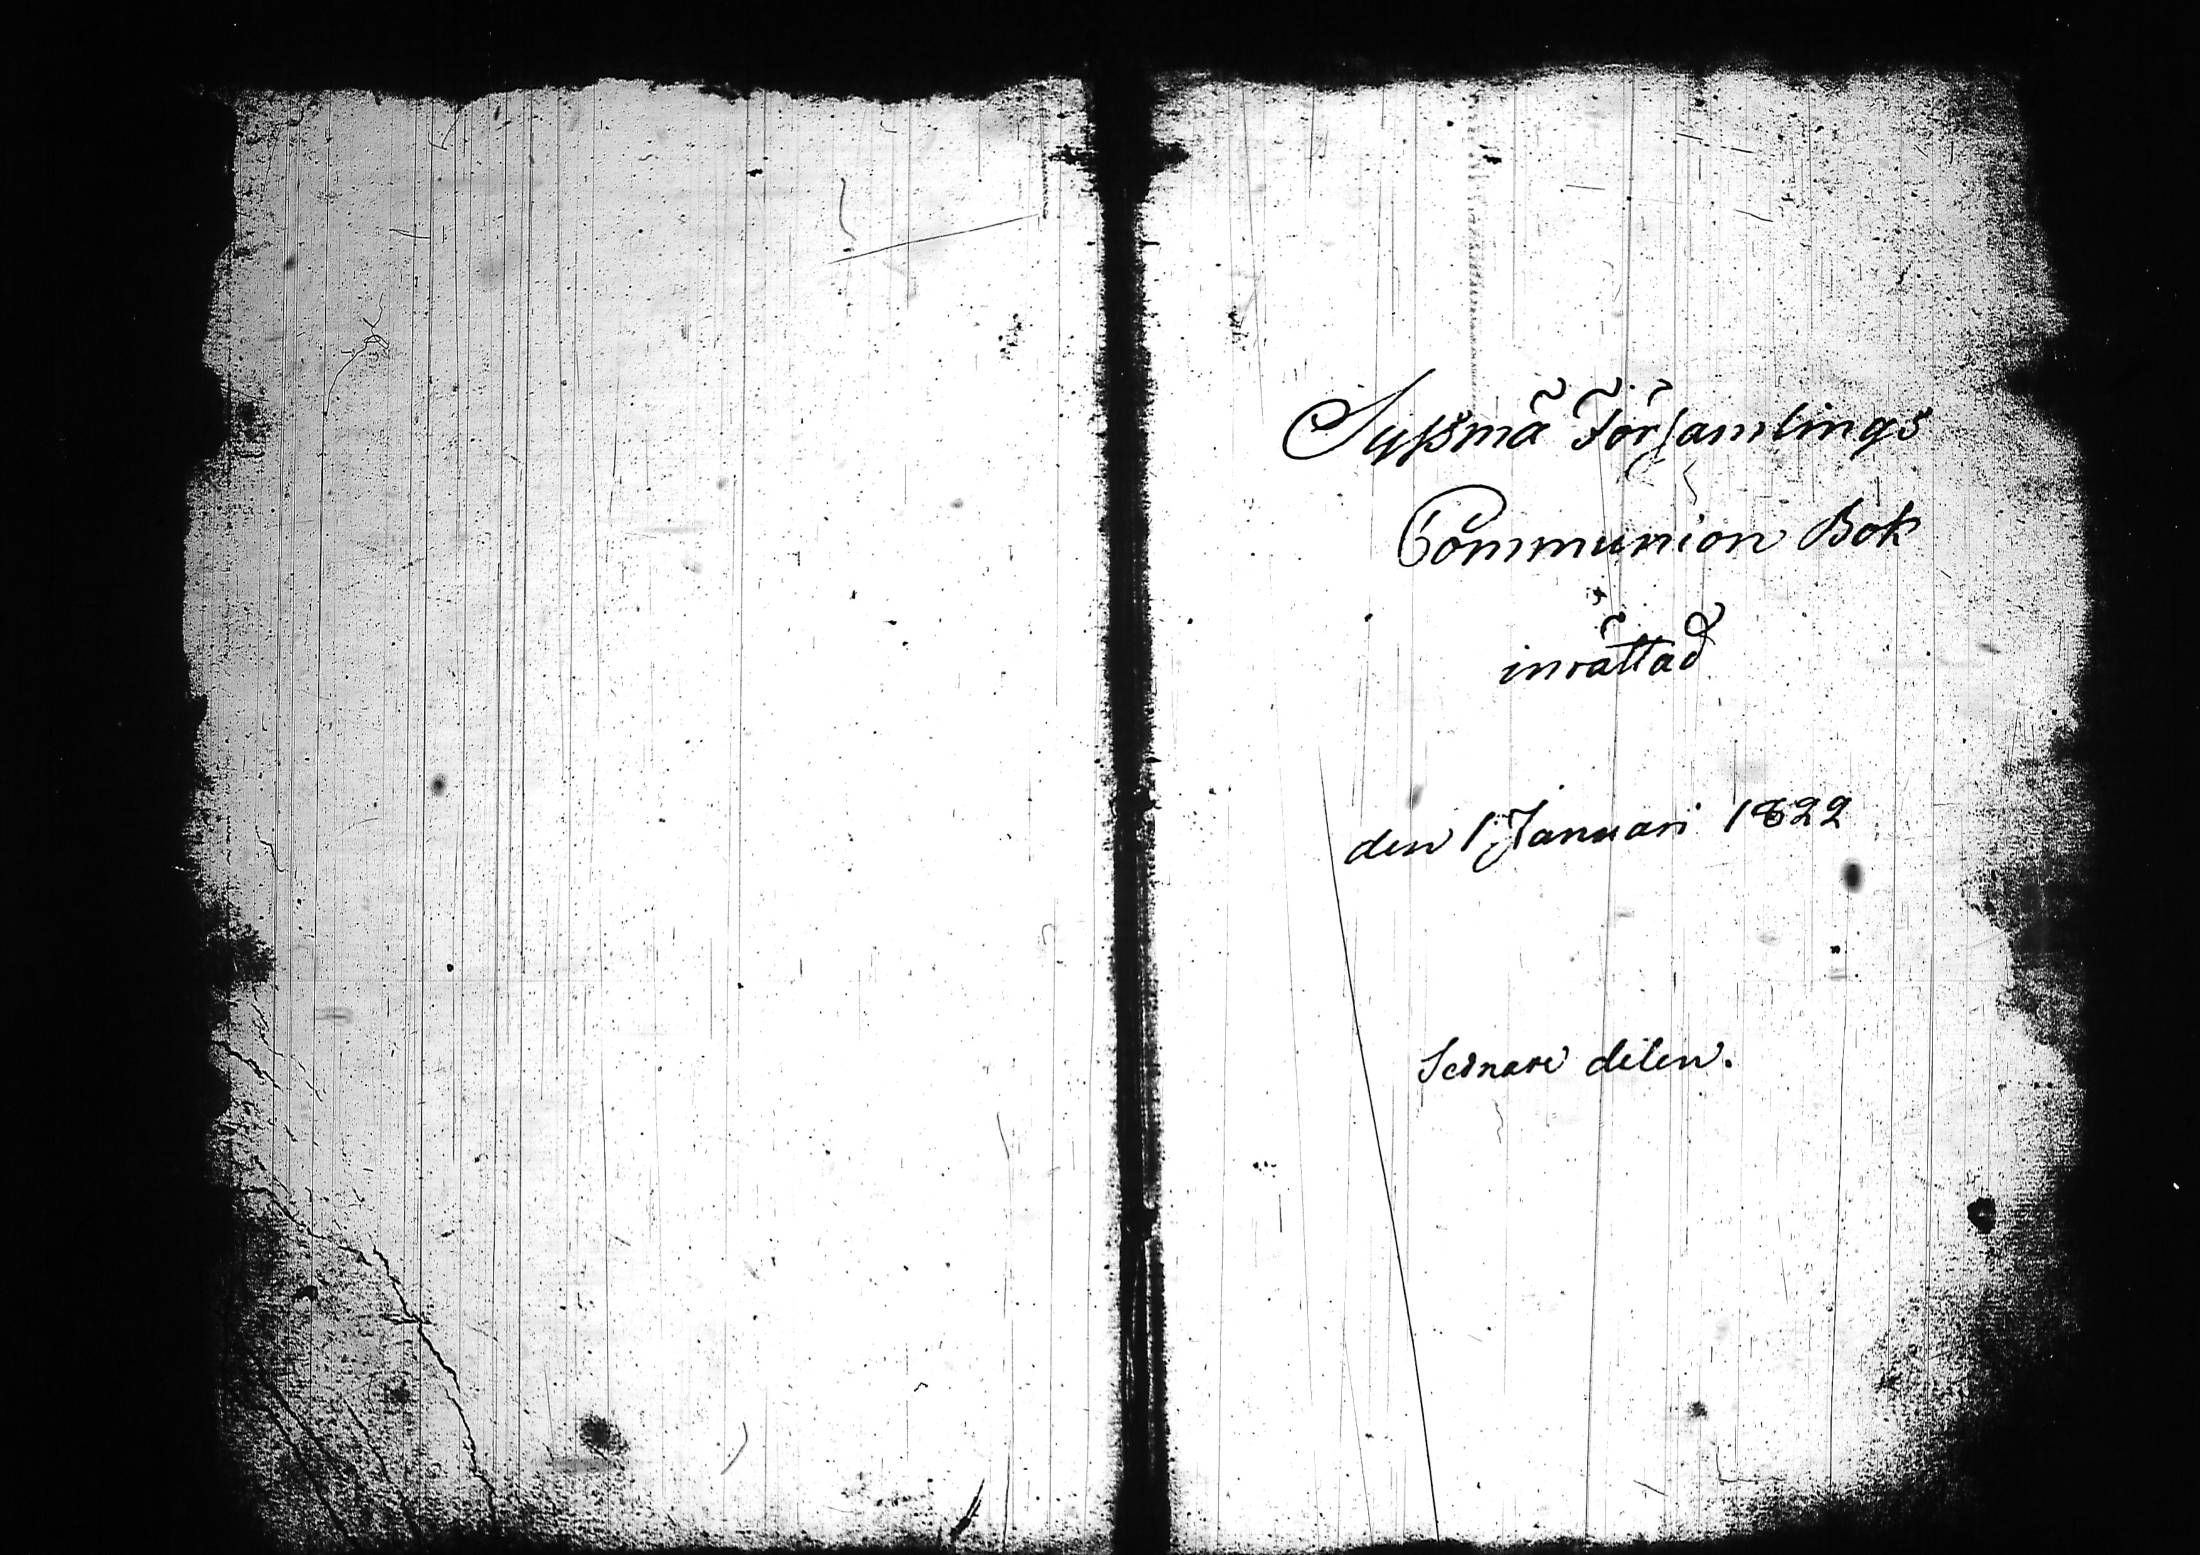 Syßmä Församlings
Communion Bok
inrättad
den 1 Januari 1822
Sednare delen.